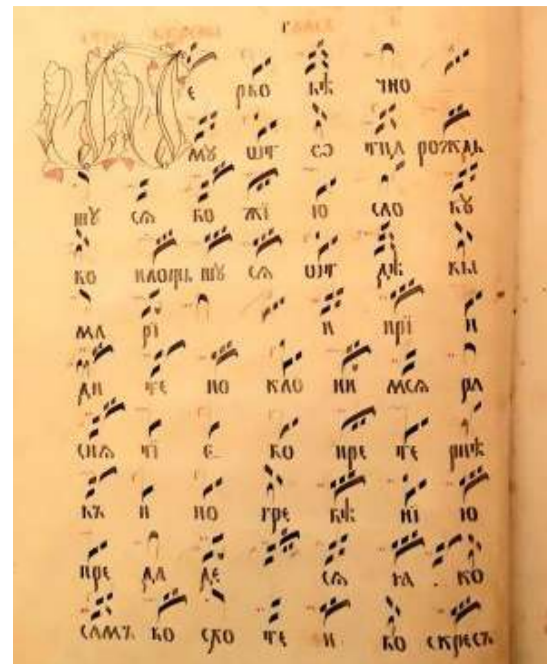 е рво вѣ чно
мꙋ ѿ ѻ тца рождь
шꙋ сѧ бо жї ю сло вꙋ
во площь шꙋ сѧ ѿ дѣ вы
ма рї и прї и
ди те по кло ни мсѧ ра
спѧ тї е бо пре те рпѣ
въ и по гре бѣ нї ю
пре да де сѧ ꙗ ко
самъ во схо те и во скресъ